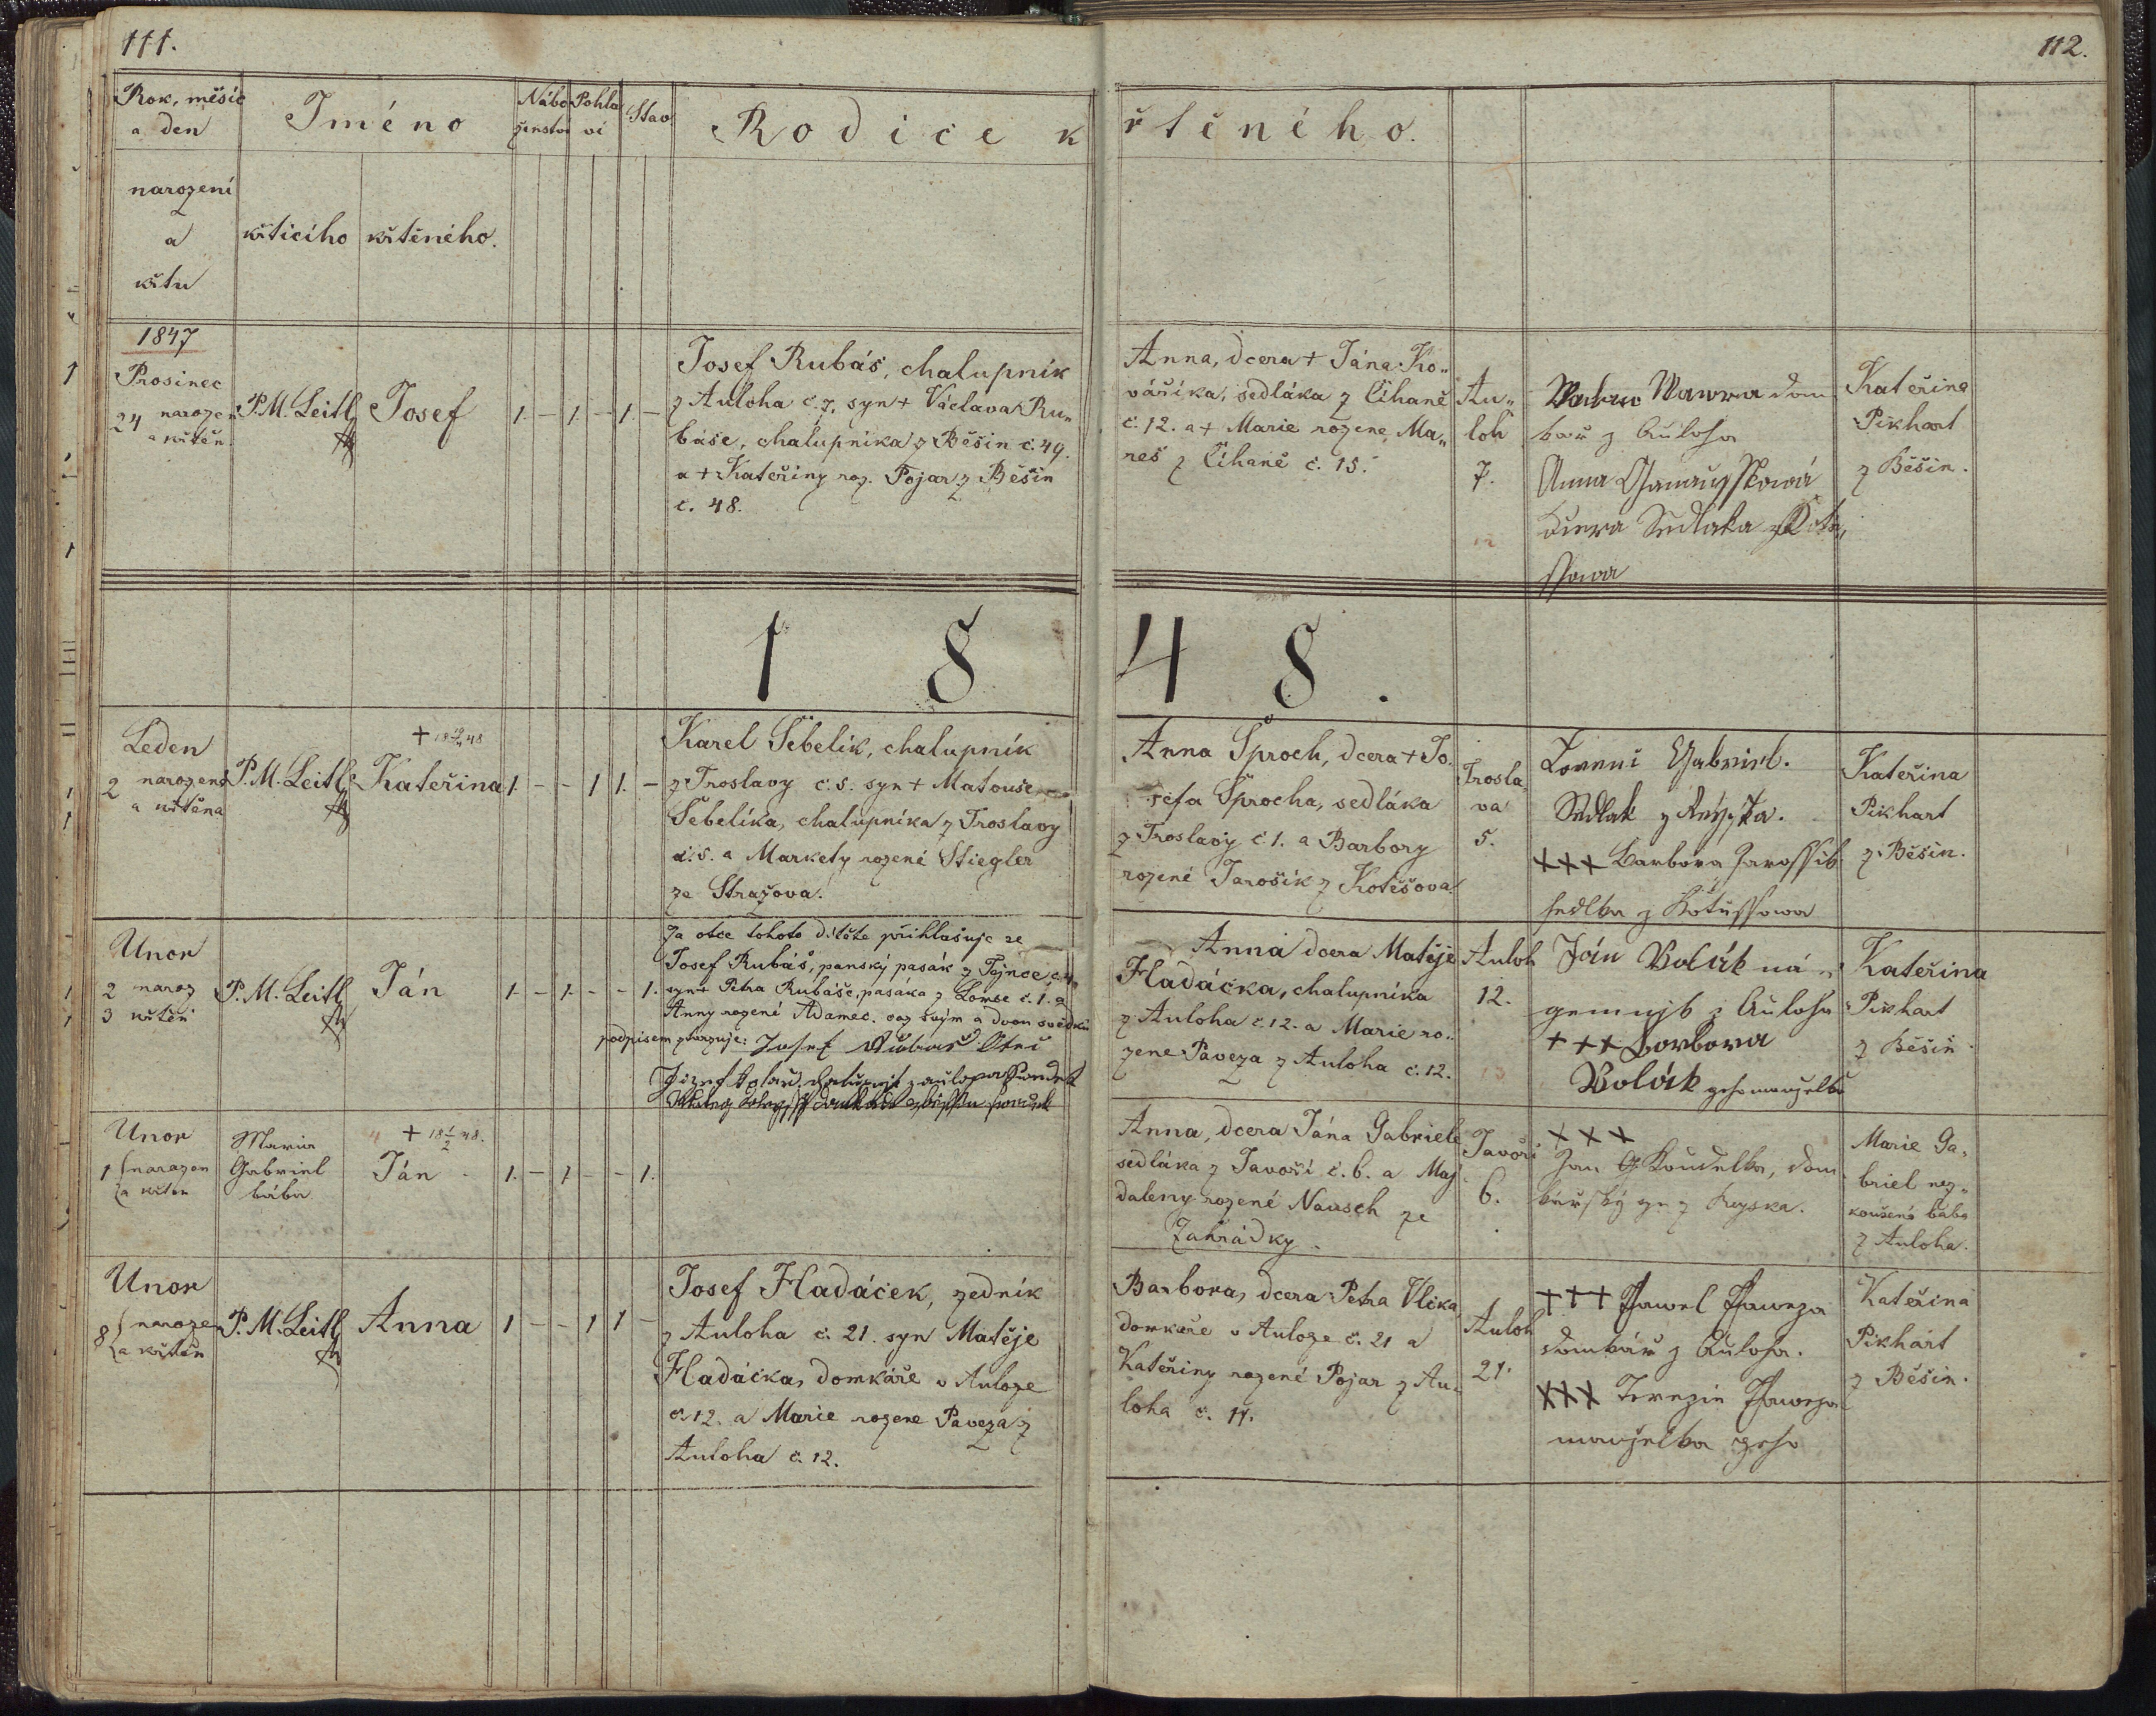 111.
112.
Rok, měsíc
a den
narozeni
a
křtu
Jméno
křticího
křtěného.
Nábo
ženstvi
Pohla
vi
Stav
Rodice k
řtěného.
1847
Prosinec
24 narozen
a křtěn
P. M. Leitl
Josef
1. - 1. - 1. -
Josef Rubáš, chalupnik
z Auloha č. 7, syn + Václava Ru„
báše, chalupnika z Běšin č. 49.
a + Kateřiny roz. Pojar z Běšin
č. 48.
Anna, dcera + Jána Ko„
váříka, sedláka z Číhaně
č. 12. a + Marie rozene Ma„
reš z Číhaně č. 15.
Au„
loh
7.
Wawra dom
kař z Auloha
Anna
dcera Sedlaka z Koto„
ssowa
Kateřina
Pikhart
z Běšin.
1 8 4 8.
Leden
2 narozena
a křtěna
P. M. Leitl
Kateřina
1. - - 1 1. -
Karel Šebelik, chalupnik
z Troslavy č. 5. syn + Matouše
Šebelíka, chalupníka z Troslavy
č. 5. a Markety rozené Stiegler
ze Stražova.
Anna Šproch, dcera + Jo„
sefa Šprocha, sedláka
z Troslavy č. 1. a Barbory
rozené Jarošik z Kotěšova
Trosla„
va
5.
Gabriel.
Sedlak z
+++ Barbora Jarossik
sedlka z Kotussowa
Kateřina
Pikhart
z Běšin.
Unor
2 naroz
3 křtěn
P. M. Leitl
Ján
1. - 1. - - 1.
Za otce tohoto dítěte přihlašuje se
Josef Rubáš, panský pasák z Tajnce č. 4.
syn + Petra Rubáše, pasáka z Lomse č. 1. a
Anny rozené Adamec. což svým a dvou svědků
podpisem potvrzuje: Josef Rubáš Otec
Anna dcera Matěje
Hladáčka, chalupníka
z Auloha č. 12. a Marie ro„
zene Paveza z Auloha č. 12.
Auloh
12.
Ján Volák ná„
gemnjk z Auloha
+++ Borbora
Volák geho manželka
Kateřina
Pikhart
z Běšin
Unor
1 narozen
a křten
Maria
Gabriel
bába
Ján
1. - 1. - - 1.
Anna, dcera Jána Gabriele
sedláka z Javoří č. 6. a Maj
daleny rozené Nausch ze
Zahrádky.
Javoři
6.
+++
Jan Koudelka, dom
kařský syn z
Marie Ga„
briel nez„
koušená bába
z Auloha.
Unor
8 naroze
a křtěn
P. M. Leitl
Anna
1 - - 1 1 -
Josef Hladáček, zedník
z Auloha č. 21. syn Matěje
Hladáčka, domkáře v Auloze
č. 12. a Marie rozene Paveza z
Auloha č. 12.
Barbora, dcera Petra Vlčka
domkaře v Auloze č. 21 a
Kateřiny rozené Pojar z Au„
loha č. 11.
Auloh
21.
+++ Pawel Paweza
domkář z Auloha.
+++ Terezie Paweza
manželka geho
Kateřina
Pikhart
z Běšin.